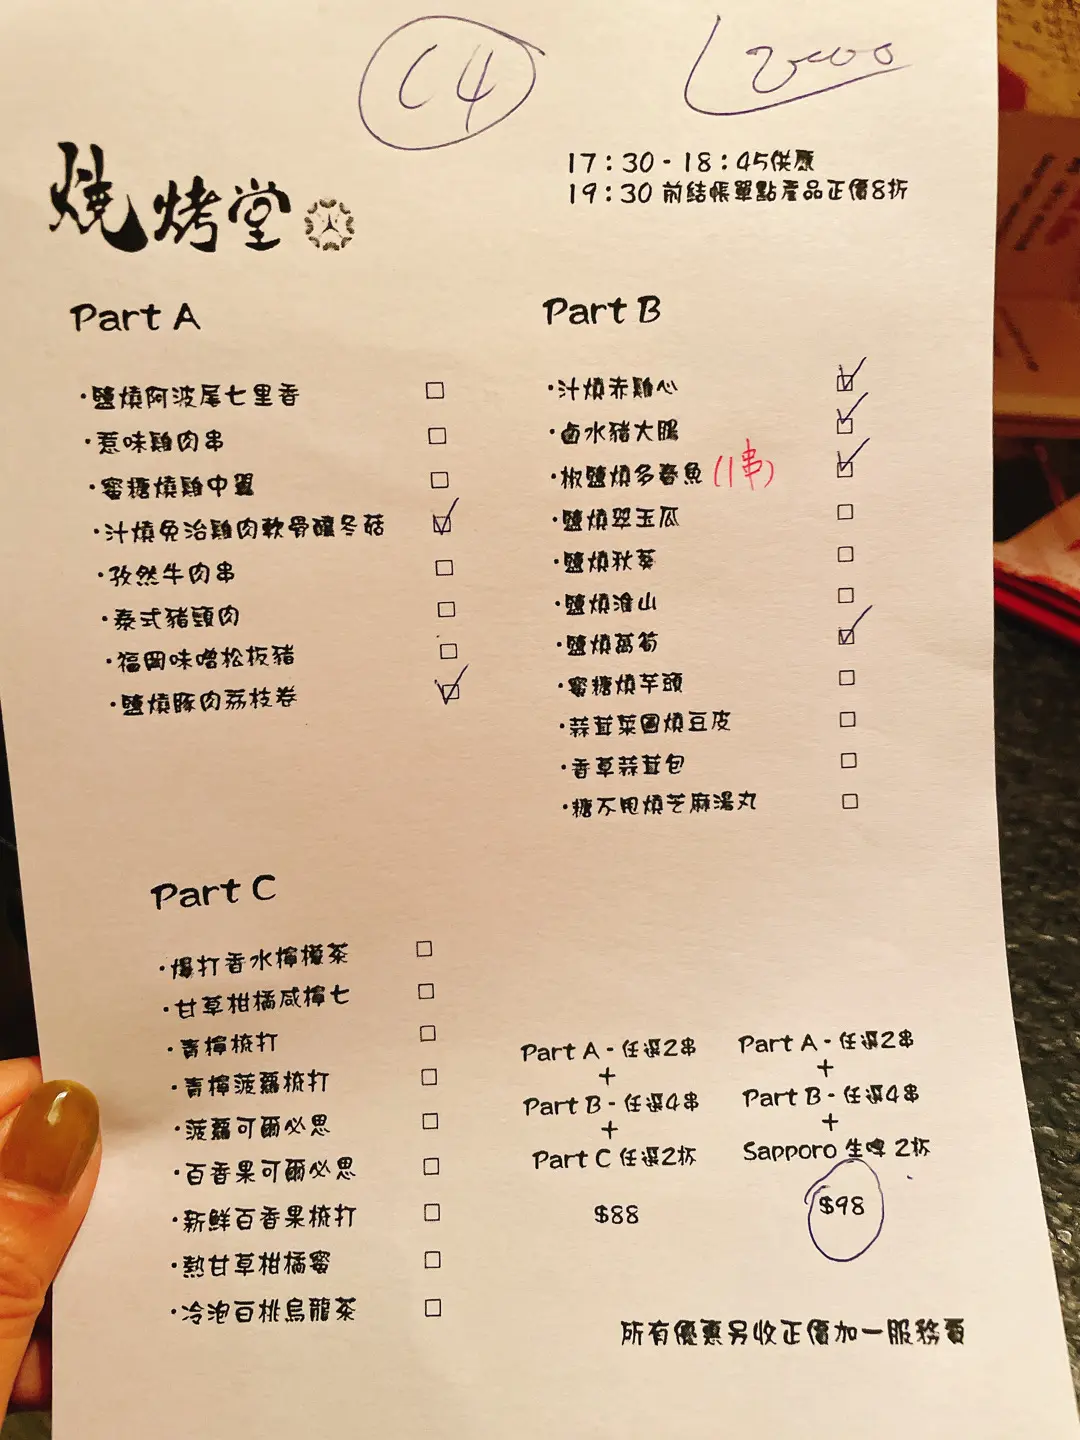 C4
2000
燒烤堂
17：30 - 18：45供應
19：30 前結帳單點產品正價8折
Part A
·鹽燒阿波尾七里香
·惹味雞肉串
·蜜糖燒雞中翼
·汁燒免治雞肉軟骨釀冬菇
·孜然牛肉串
·泰式豬頸肉
·福岡味噌松板豬
·鹽燒豚肉荔枝卷
Part B
·汁燒赤雞心
·鹵水豬大腸
·椒鹽燒多春魚 (1串)
·鹽燒翠玉瓜
·鹽燒秋葵
·鹽燒淮山
·鹽燒萵筍
·蜜糖燒芋頭
·蒜茸菜圃燒豆皮
·香草蒜茸包
·糖不甩燒芝麻湯丸
Part C
·爆打香水檸檬茶
·甘草柑橘咸檸七
·青檸梳打
·青檸菠蘿梳打
·菠蘿可爾必思
·百香果可爾必思
·新鮮百香果梳打
·熱甘草柑橘蜜
·冷泡白桃烏龍茶
Part A - 任選2串
+
Part B - 任選4串
+
Part C 任選2杯
$88
Part A - 任選2串
+
Part B - 任選4串
+
Sapporo 生啤 2杯
$98
所有優惠另收正價加一服務費